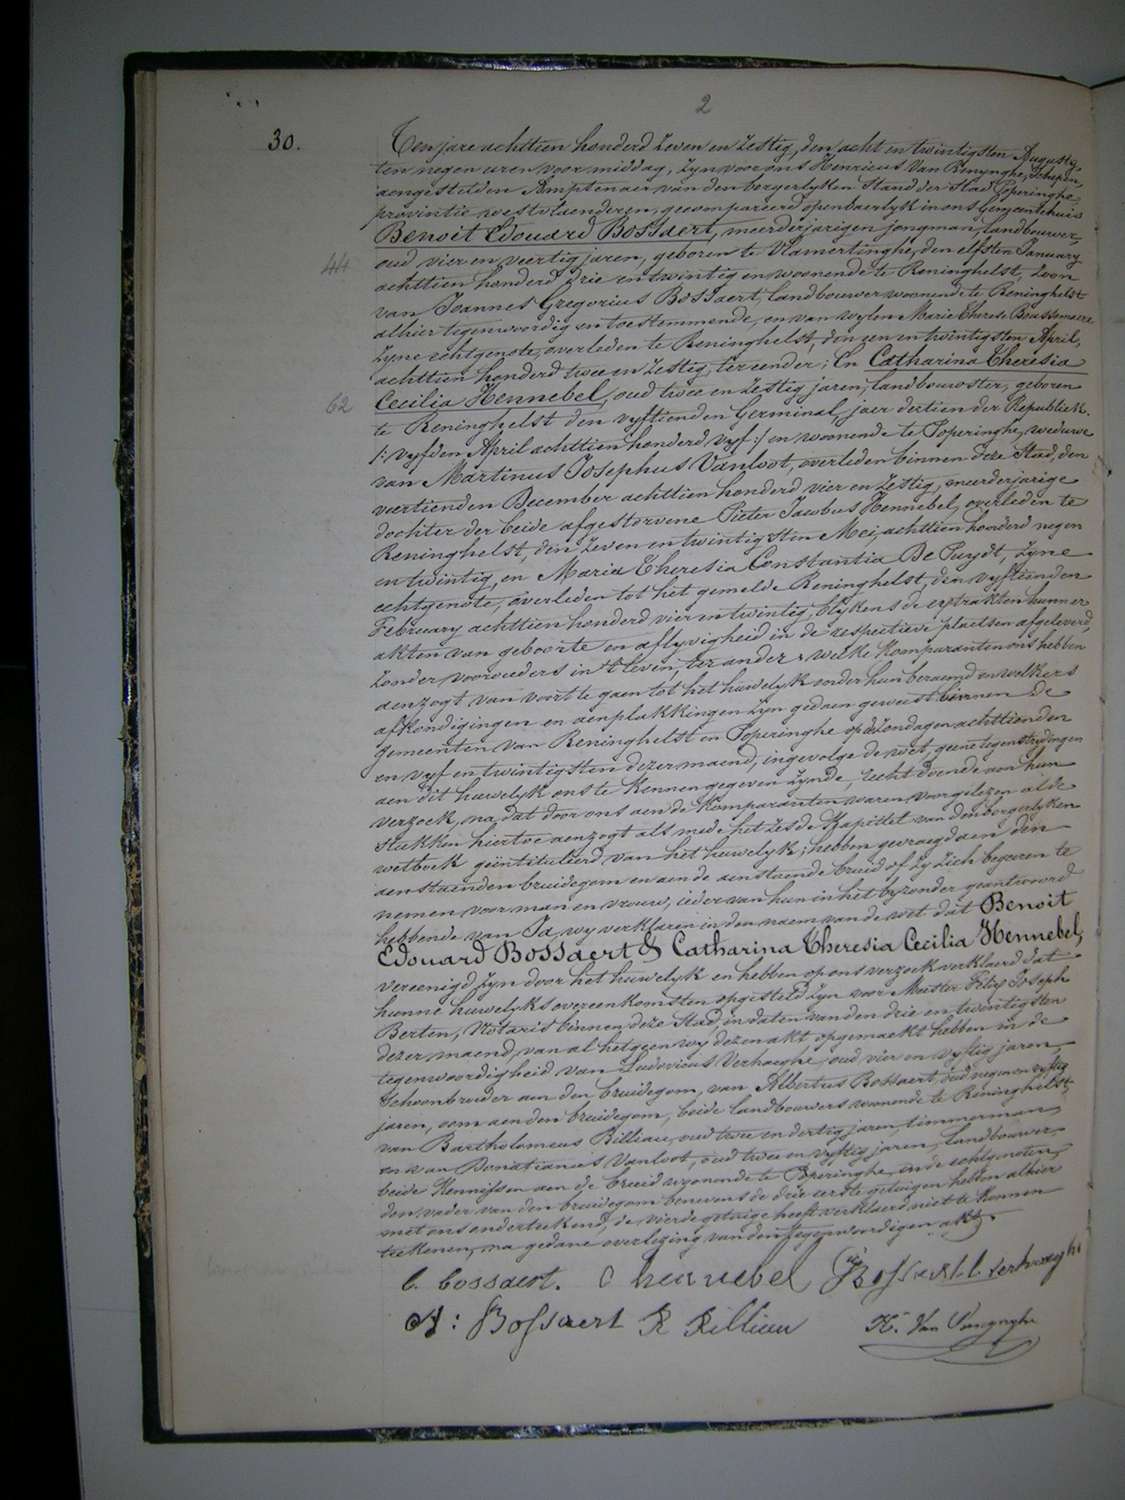 2
30.
Ten jare achttien honderd zeven en zestig, den acht en twintigsten Augusty,
ten negen uren voor middag, zyn voor ons Henricus Van Renynghe, Schepen,
aengestelden Amptenaer van den borgerlyken Stand der Stad Poperinghe,
provintie westvlaenderen, gecompareerd openbaerlyk in ons Gemeentehuis
Benoit Edouard Bossaert, meerderjarigen jongman, landbouwer,
44
oud vier en veertig jaren, geboren te Vlamertinghe, den elfsten January
achttien honderd drie en twintig en woonende te Reninghelst, zoon
van Joannes Gregorius Bossaert, landbouwer woonende te Reninghelst
alhier tegenwoordig en toestemmende, en van wylen Marie Therese Boussemaere
zyne echtgenote, overleden te Reninghelst, den een en twintigsten April,
achttien honderd twee en zestig, ter eender; En Catharina Theresia
62
Cecilia Hennebel, oud twee en zestig jaren, landbouwster, geboren
te Reninghelst den vyftienden Germinal, jaer dertien der Republiek
/: vyfden April achttien honderd vyf :/ en woonende te Poperinghe, weduwe
van Martinus Josephus Vanloot, overleden binnen deze Stad, den
veertienden December achttien honderd vier en zestig, meerderjarige
dochter der beide afgestorvene Pieter Jacobus Hennebel, overleden te
Reninghelst, den zeven en twintigsten Mei, achttien honderd negen
en twintig, en Maria Theresia Constantia De Puydt, zyne
echtgenote, overleden tot het gemelde Reninghelst, den vyftienden
February achttien honderd vier en twintig, blykens de extrakten hunner
akten van geboorte en aflyvigheid in de respectieve plaetsen afgeleverd,
zonder voorouders in 't leven, ter ander; welke komparanten ons hebben
aenzogt van voort te gaen tot het huwelyk onder hun beraemd en welkers
afkondigingen en aenplakkingen zyn gedaen geweest binnen de
gemeenten van Reninghelst en Poperinghe op de zondagen achttienden
en vyf en twintigsten dezer maend, ingevolge de wet, geene tegenstrydingen
aen dit huwelyk ons te kennen gegeven zynde, recht doende aen hun
verzoek, na dat door ons aen de komparanten waren voorgelezen al de
stukken hiertoe aenzogt als mede het zesde Kapittel van den borgerlyken
wetboek geïntituleerd van het huwelyk; hebben gevraegd aen den
aenstaenden bruidegom en aen de aenstaende bruid of zy zich begeeren te
nemen voor man en vrouw, ieder van hun in het byzonder geantwoord
hebbende van Ja, wy verklaren in den naem van de wet dat Benoit
Edouard Bossaert & Catharina Theresia Cecilia Hennebel,
vereenigd zyn door het huwelyk en hebben op ons verzoek verklaerd dat
hunne huwelyksovereenkomsten opgesteld zyn voor Meester Felix Joseph
Berten, Notaris binnen deze Stad, in daten van den drie en twintigsten
dezer maend, van al hetgeen wy dezen akt opgemaekt hebben in de
tegenwoordigheid van Ludovicus Verhaeghe, oud vier en vyftig jaren,
schoonbroeder aen den bruidegom, van Albertus Bossaert, oud negen en vyftig
jaren, oom aen den bruidegom, beide landbouwers woonende te Reninghelst,
van Bartholomeus Rilliau, oud twee en dertig jaren, timmerman
en van Donatianus Vanloot, oud twee en vyftig jaren, landbouwer,
beide kennissen aen de bruid woonende te Poperinghe, en de echtgenoten,
den vader van den bruidegom benevens de drie eerste getuigen hebben alhier
met ons onderteekend, de vierde getuige heeft verklaerd niet te konnen
teekenen, na gedane overlezing van den tegenwoordigen akt.
b. bossaert. C hennebel Bossaert L. verhaeghe
A: Bossaert B Rilliau H. Van Renynghe